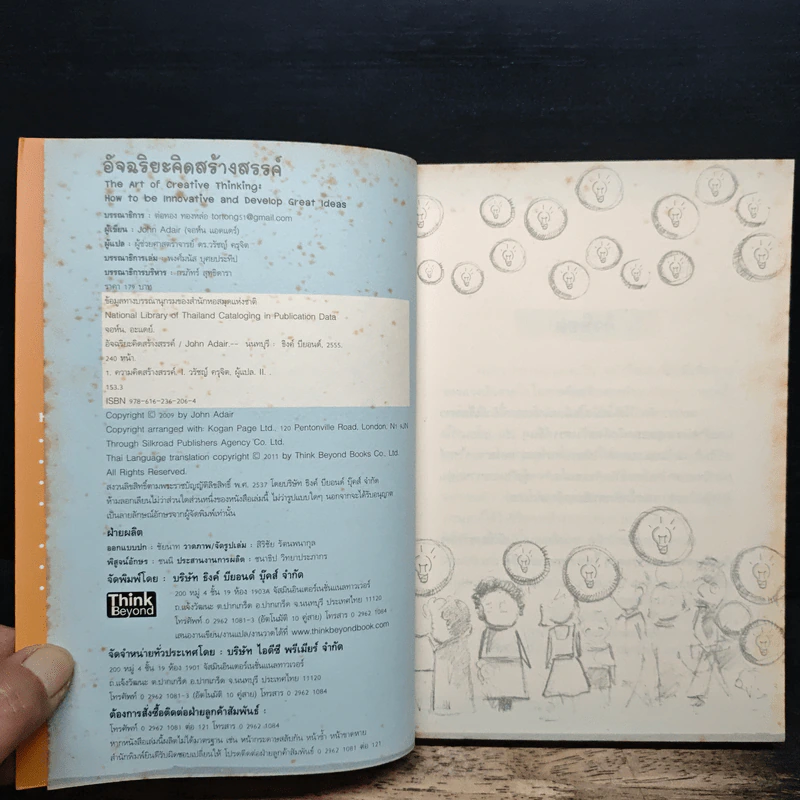 อัจฉริยะคิดสร้างสรรค์
The Art of Creative Thinking:
How to be Innovative and Develop Great Ideas
บรรณาธิการ : ต่อทอง ทองหล่อ tortongs1@gmail.com
ผู้เขียน : John Adair (จอห์น แอดแดร์)
ผู้แปล : ผู้ช่วยศาสตราจารย์ ดร.วรัชญ์ ครุจิต
บรรณาธิการเล่ม : พงศ์มนัส บุศยประทีป
บรรณาธิการบริหาร : สรภัทร์ สุขธิดารา
ราคา 179 บาท
ข้อมูลทางบรรณานุกรมของสำนักหอสมุดแห่งชาติ
National Library of Thailand Cataloging in Publication Data
จอห์น, อะแดย์.
อัจฉริยะคิดสร้างสรรค์ / John Adair -- นนทบุรี : ธิงค์ บียอนด์, 2555.
240 หน้า.
1. ความคิดสร้างสรรค์. I. วรัชญ์ ครุจิต, ผู้แปล. II.
153.3
ISBN 978-616-236-206-4
Copyright © 2009 by John Adair
Copyright arranged with: Kogan Page Ltd., 120 Pentonville Road, London, N1 9JN
Through Silkroad Publishers Agency Co. Ltd.
Thai Language translation copyright © 2011 by Think Beyond Books Co., Ltd.
All Rights Reserved.
สงวนลิขสิทธิ์ตามพระราชบัญญัติลิขสิทธิ์ พ.ศ. 2537 โดยบริษัท ธิงค์ บียอนด์ บุ๊คส์ จำกัด
ห้ามลอกเลียนไม่ว่าส่วนใดส่วนหนึ่งของหนังสือเล่มนี้ ไม่ว่ารูปแบบใดๆ นอกจากจะได้รับอนุญาต
เป็นลายลักษณ์อักษรจากผู้จัดพิมพ์เท่านั้น
ฝ่ายผลิต
ออกแบบปก : ชัยนาท วาดภาพ/จัดรูปเล่ม : สิริชัย รัตนพนากุล
พิสูจน์อักษร : ชนนี ประสานงานการผลิต : ชนาธิป วิทยาประภากร
จัดพิมพ์โดย : บริษัท ธิงค์ บียอนด์ บุ๊คส์ จำกัด
Think
Beyond
200 หมู่ 4 ชั้น 19 ห้อง 1903A จัสมินอินเตอร์เนชั่นแนลทาวเวอร์
ถ.แจ้งวัฒนะ ต.ปากเกร็ด อ.ปากเกร็ด จ.นนทบุรี ประเทศไทย 11120
โทรศัพท์ 0 2962 1081-3 (อัตโนมัติ 10 คู่สาย) โทรสาร 0 2962 1084
เสนองานเขียน/งานแปล/งานวาดได้ที่ www.thinkbeyondbook.com
จัดจำหน่ายทั่วประเทศโดย : บริษัท ไอดีซี พรีเมียร์ จำกัด
200 หมู่ 4 ชั้น 19 ห้อง 1901 จัสมินอินเตอร์เนชั่นแนลทาวเวอร์
ถ.แจ้งวัฒนะ ต.ปากเกร็ด อ.ปากเกร็ด จ.นนทบุรี ประเทศไทย 11120
โทรศัพท์ 0 2962 1081-3 (อัตโนมัติ 10 คู่สาย) โทรสาร 0 2962 1084
ต้องการสั่งซื้อติดต่อฝ่ายลูกค้าสัมพันธ์ :
โทรศัพท์ 0 2962 1081 ต่อ 121 โทรสาร 0 2962 1084
หากหนังสือเล่มนี้ผลิตไม่ได้มาตรฐาน เช่น หน้ากระดาษสลับกัน หน้าซ้ำ หน้าขาดหาย
สำนักพิมพ์ยินดีรับผิดชอบเปลี่ยนให้ โปรดติดต่อฝ่ายลูกค้าสัมพันธ์ 0 2962 1081 ต่อ 121